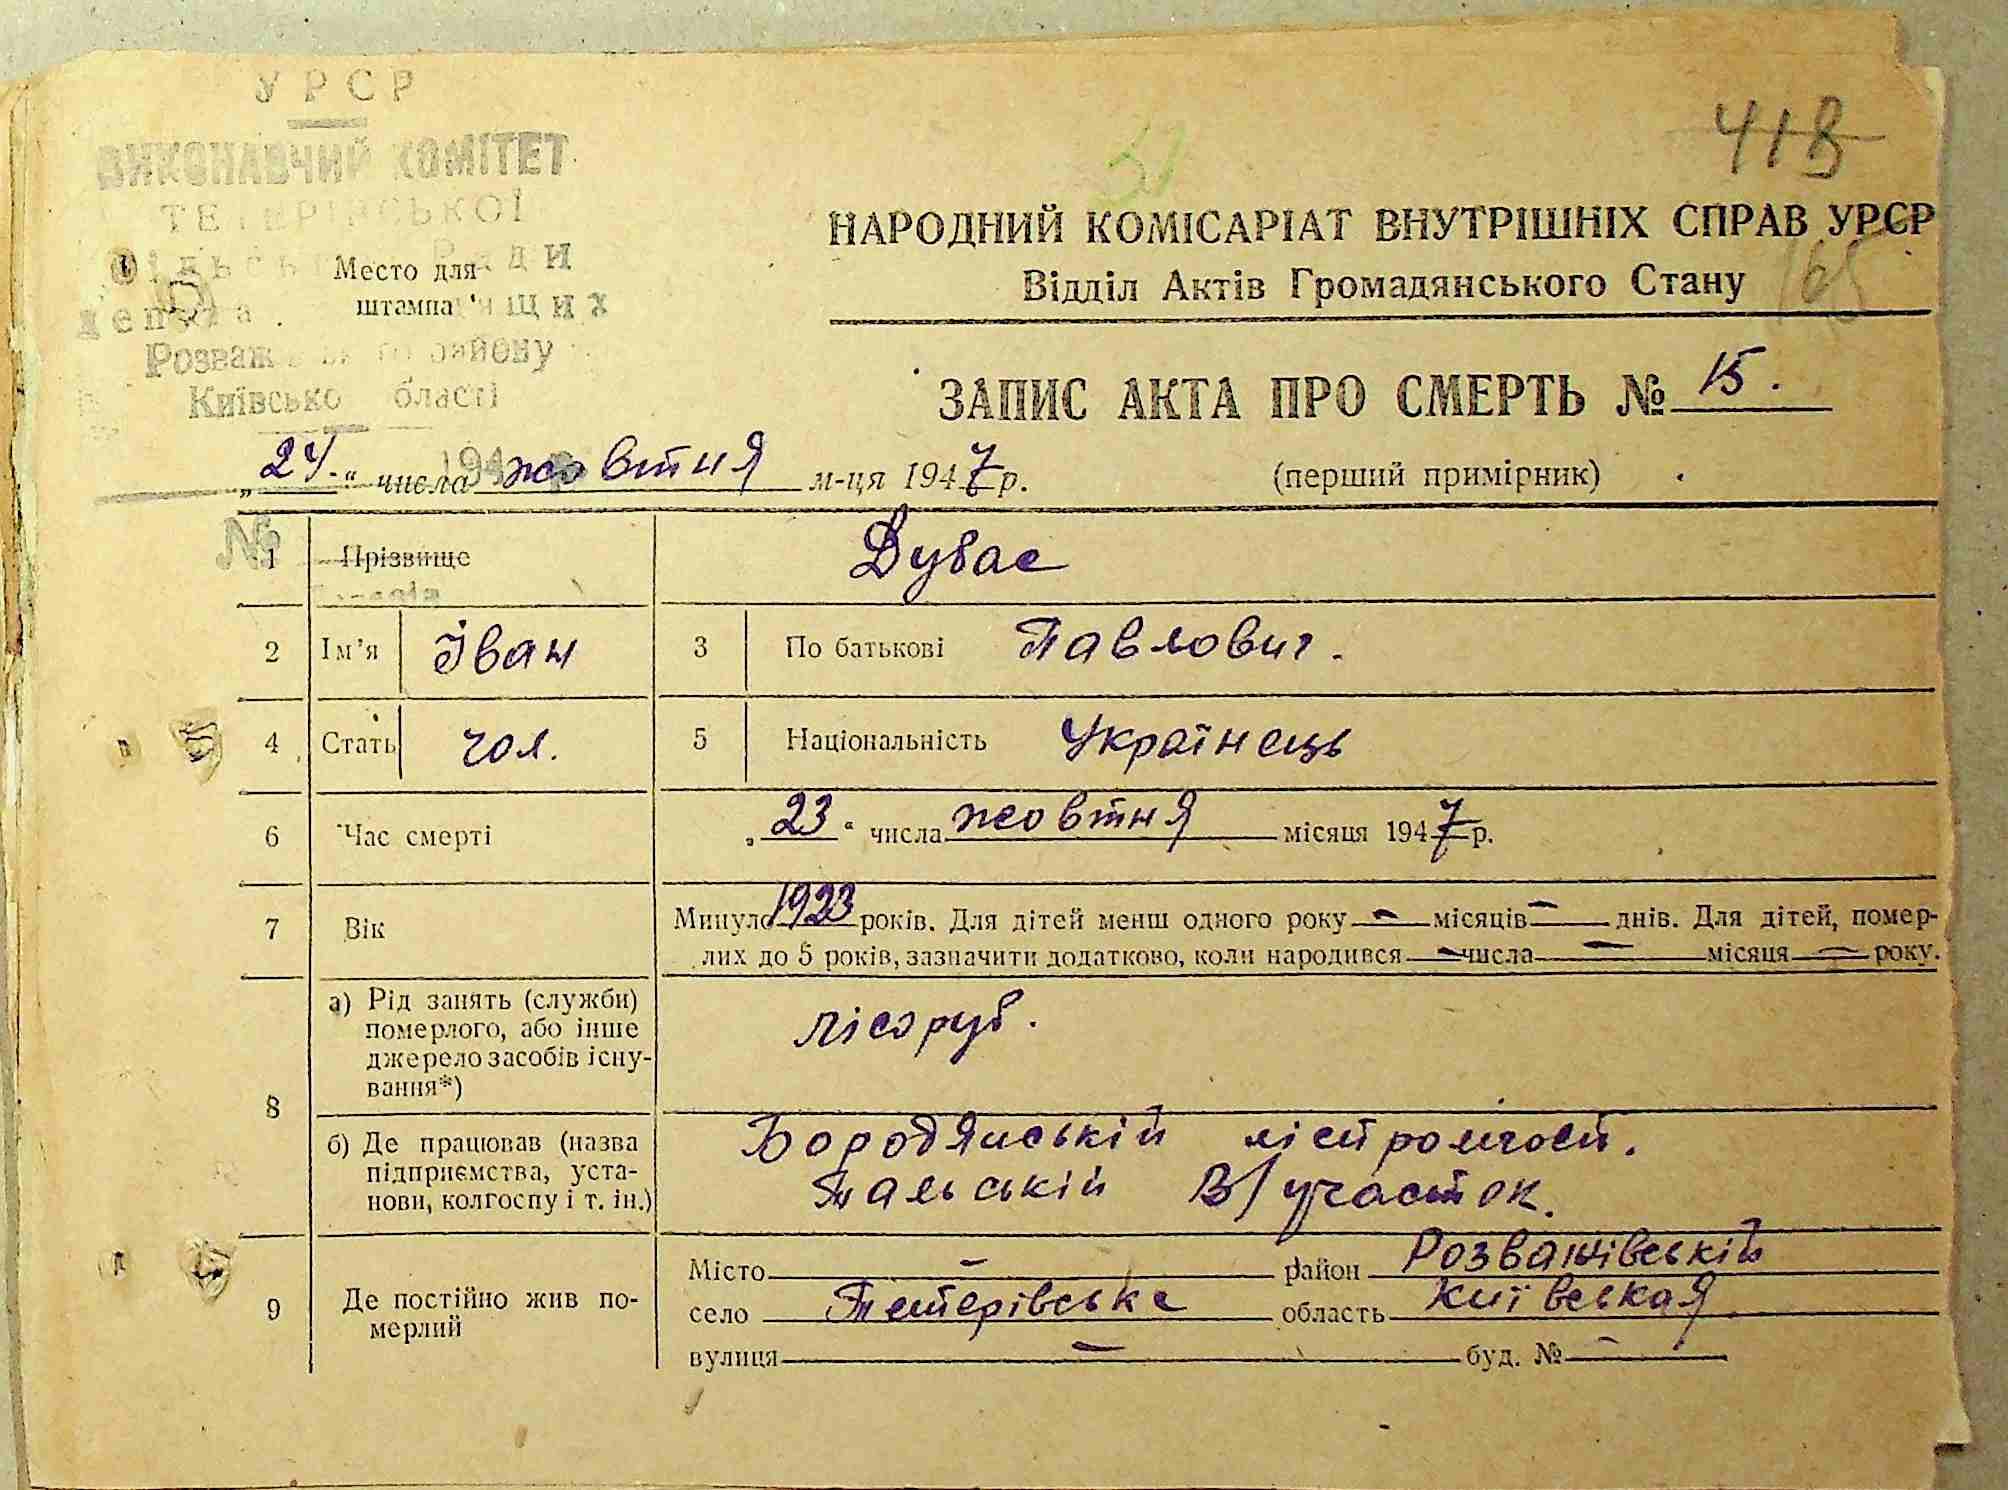 УРСР
ВИКОНАВЧИЙ КОМІТЕТ
ТЕТЕРІВСЬКОЇ
Ради
Место для
штампа
Розваж району
Київсько бласті
418
НАРОДНИЙ КОМІСАРІАТ ВНУТРІШНІХ СПРАВ УРСР
Відділ Актів Громадянського Стану
165
ЗАПИС АКТА ПРО СМЕРТЬ № 15.
„24“ числа жовтня м-ця 1947 р.
(перший примірник)
№
1 Прізвище Дубас
2 Ім'я Іван 3 По батькові Павлович.
4 Стать чол. 5 Національність Українець
6 Час смерті „23“ числа жовтня місяця 1947 р.
7 Вік Минуло 1923 років. Для дітей менш одного року — місяців — днів. Для дітей, помер-
лих до 5 років, зазначити додатково, коли народився — числа — місяця — року.
8 а) Рід занять (служби)
померлого, або інше
джерело засобів існу-
вання*)
лісоруб.
б) Де працював (назва
підприємства, уста-
нови, колгоспу і т. ін.)
Бородянській
Тальській В/участок.
9 Де постійно жив по-
мерлий
Місто — район Розважівській
село Тетерівське область Київская
вулиця — буд. № —